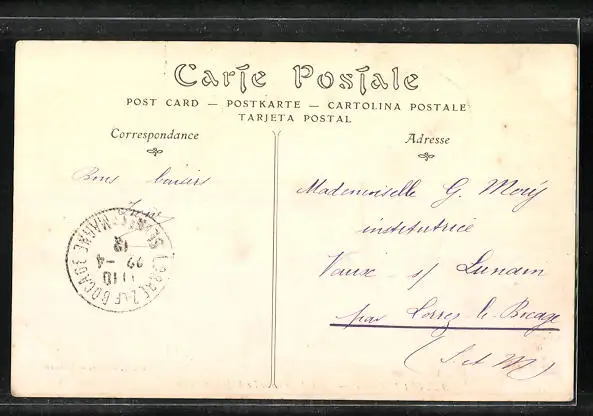 Carte Postale
POST CARD — POSTKARTE — CARTOLINA POSTALE
TARJETA POSTAL
Correspondance
Bons baisers
Adresse
Mademoiselle G. Moriz
institutrice
Vaux s/ Lunain
par Lorrez-le-Bocage
(S. et M.)
LORREZ-LE-BOCAGE
SEINE-ET-MARNE
11 10
22 -4
12